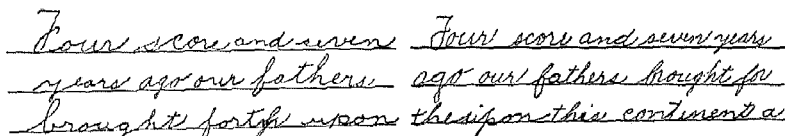 Four score and seven
years ago our fathers
brought forth upon
Four score and seven years
ago our fathers brought for
thesipon this continent a